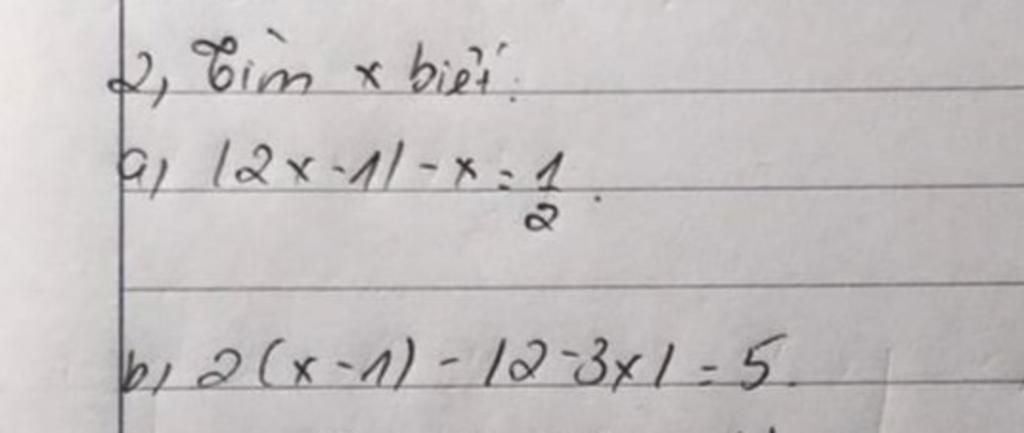 2, Tìm x biết:
a) |2x - 1| - x = 1/2.
b) 2(x - 1) - |2 - 3x| = 5.